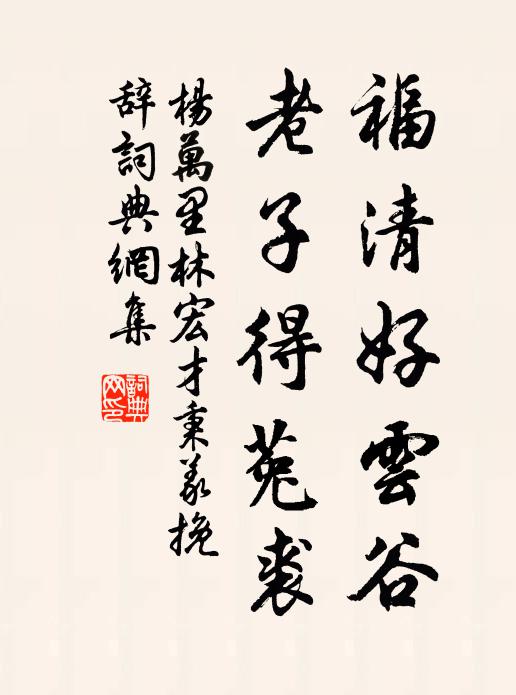 福清好雲谷
老子得菟裘
楊萬里林宏才秉義挽
辭詞典網集
詞典
網印